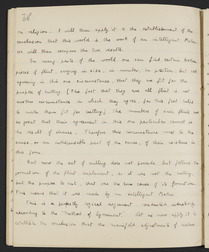 28
in religion. I will then apply it to the establishment of the
conclusion that this world is the work of an intelligent Maker
we will then compare the two results.
In many parts of the world one can find certain
pieces of flint, varying in size, in number, in position but not
agreeing in this one circumstance, that they are fit for the
purpose of cutting (the fact that they are all flint is not
another circumstance in which they agree for this fact
make them fit for cutting). The number of
so great that their agreement in this one particular cannot be
the result of chance. Therefore this circumstance must be the
cause, or an indispensable part of the cause, of their existence in
this form.
But now the act of cutting does not precede, but follows the
formation of the flint implement, so it was not the cutting,
but the purpose to cut, that was the true cause of its formation.
This means that it was made by an intelligent Maker.
This is a perfectly agreed argument
according to the "Method of Agreement". Let us now apply it to
establish the conclusion that the manifold adjustments of nature